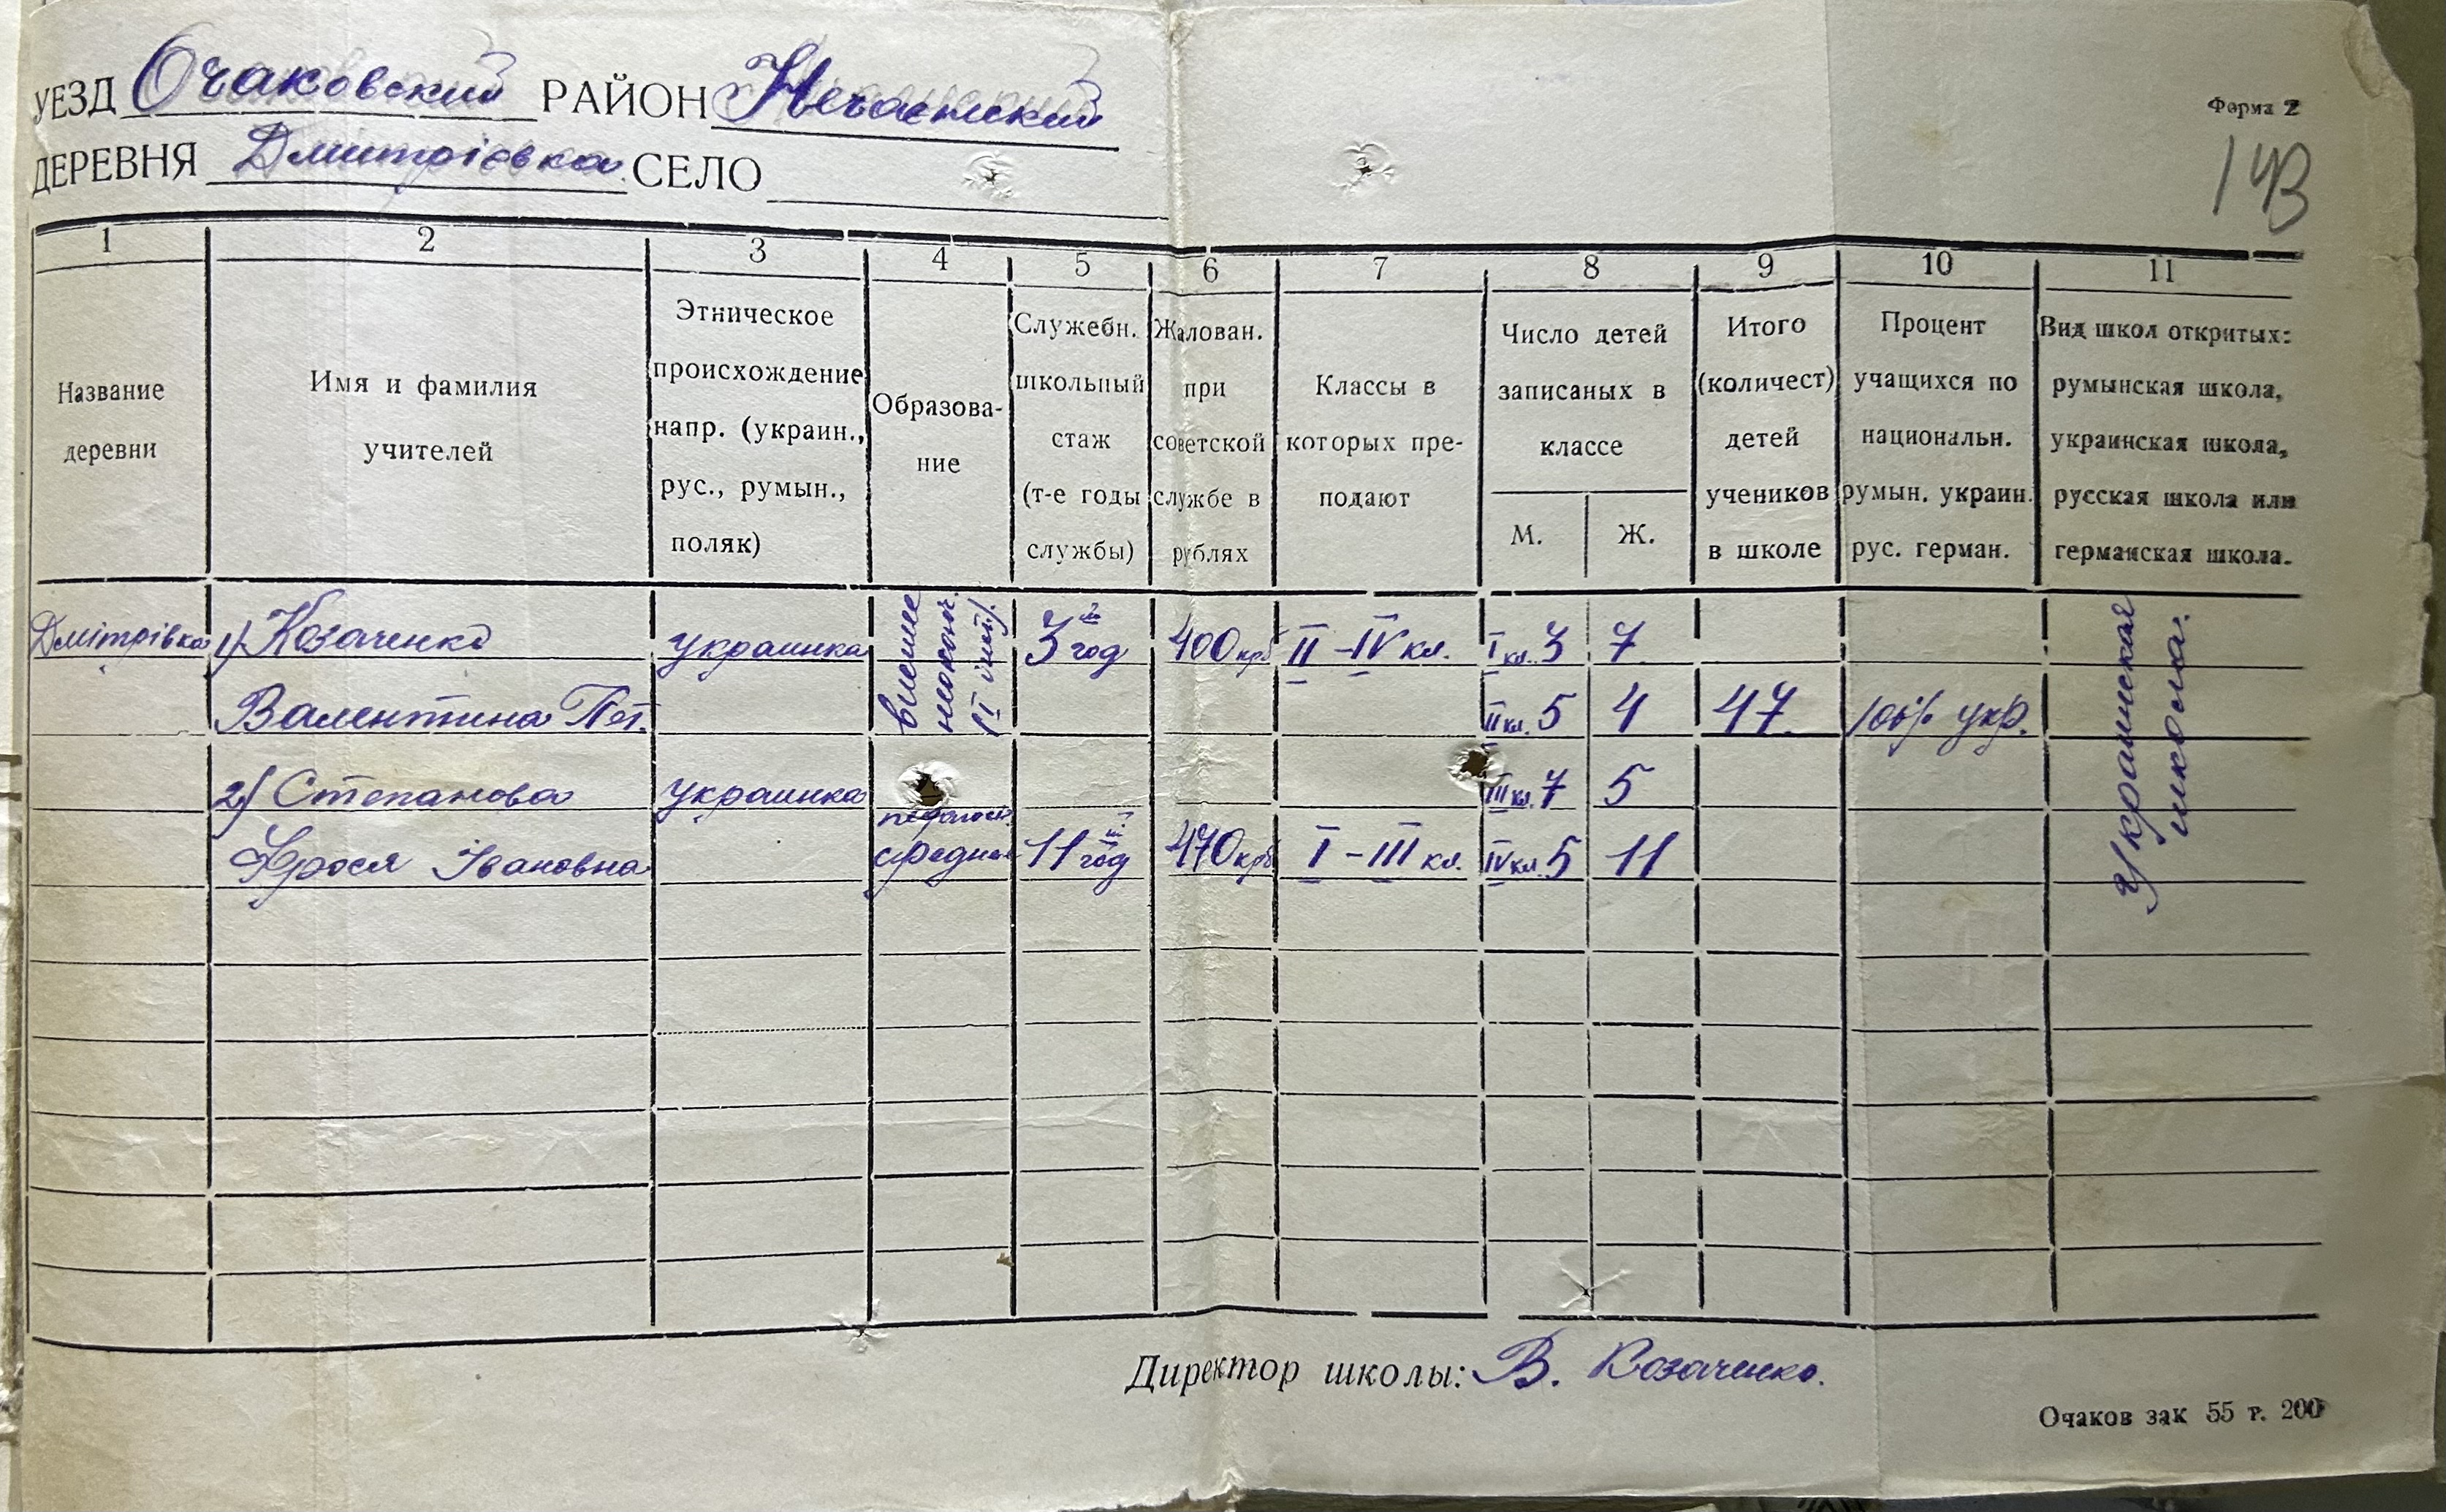 УЕЗД Очаковский РАЙОН Нечаянский
ДЕРЕВНЯ Дмитріевка СЕЛО
Форма 2
143
1 2 3 4 5 6 7 8 9 10 11
Название
деревни
Имя и фамилия
учителей
Этническое
происхождение
напр. (украин.,
рус., румын.,
поляк)
Образова-
ние
Служебн.
школьный
стаж
(т-е годы
службы)
Жалован.
при
советской
службе в
рублях
Классы в
которых пре-
подают
Число детей
записаных в
классе
М. Ж.
Итого
(количест)
детей
учеников
в школе
Процент
учащихся по
национальн.
румын. украин.
рус. герман.
Вид школ открытых:
румынская школа,
украинская школа,
русская школа или
германская школа.
Дмітрівка 1) Козаченко украинка 3 й год 400 крб II - IV кл. I кл. 3 7
Валентина Пет. II кл. 5 4 47. 100% укр.
2) Степанова украинка III кл. 7 5
Фрося Івановна средн. 11 й год 470 крб I - III кл. IV кл. 5 11
Украинская
школа.
Директор школы: В. Козаченко.
Очаков зак 55 т. 200